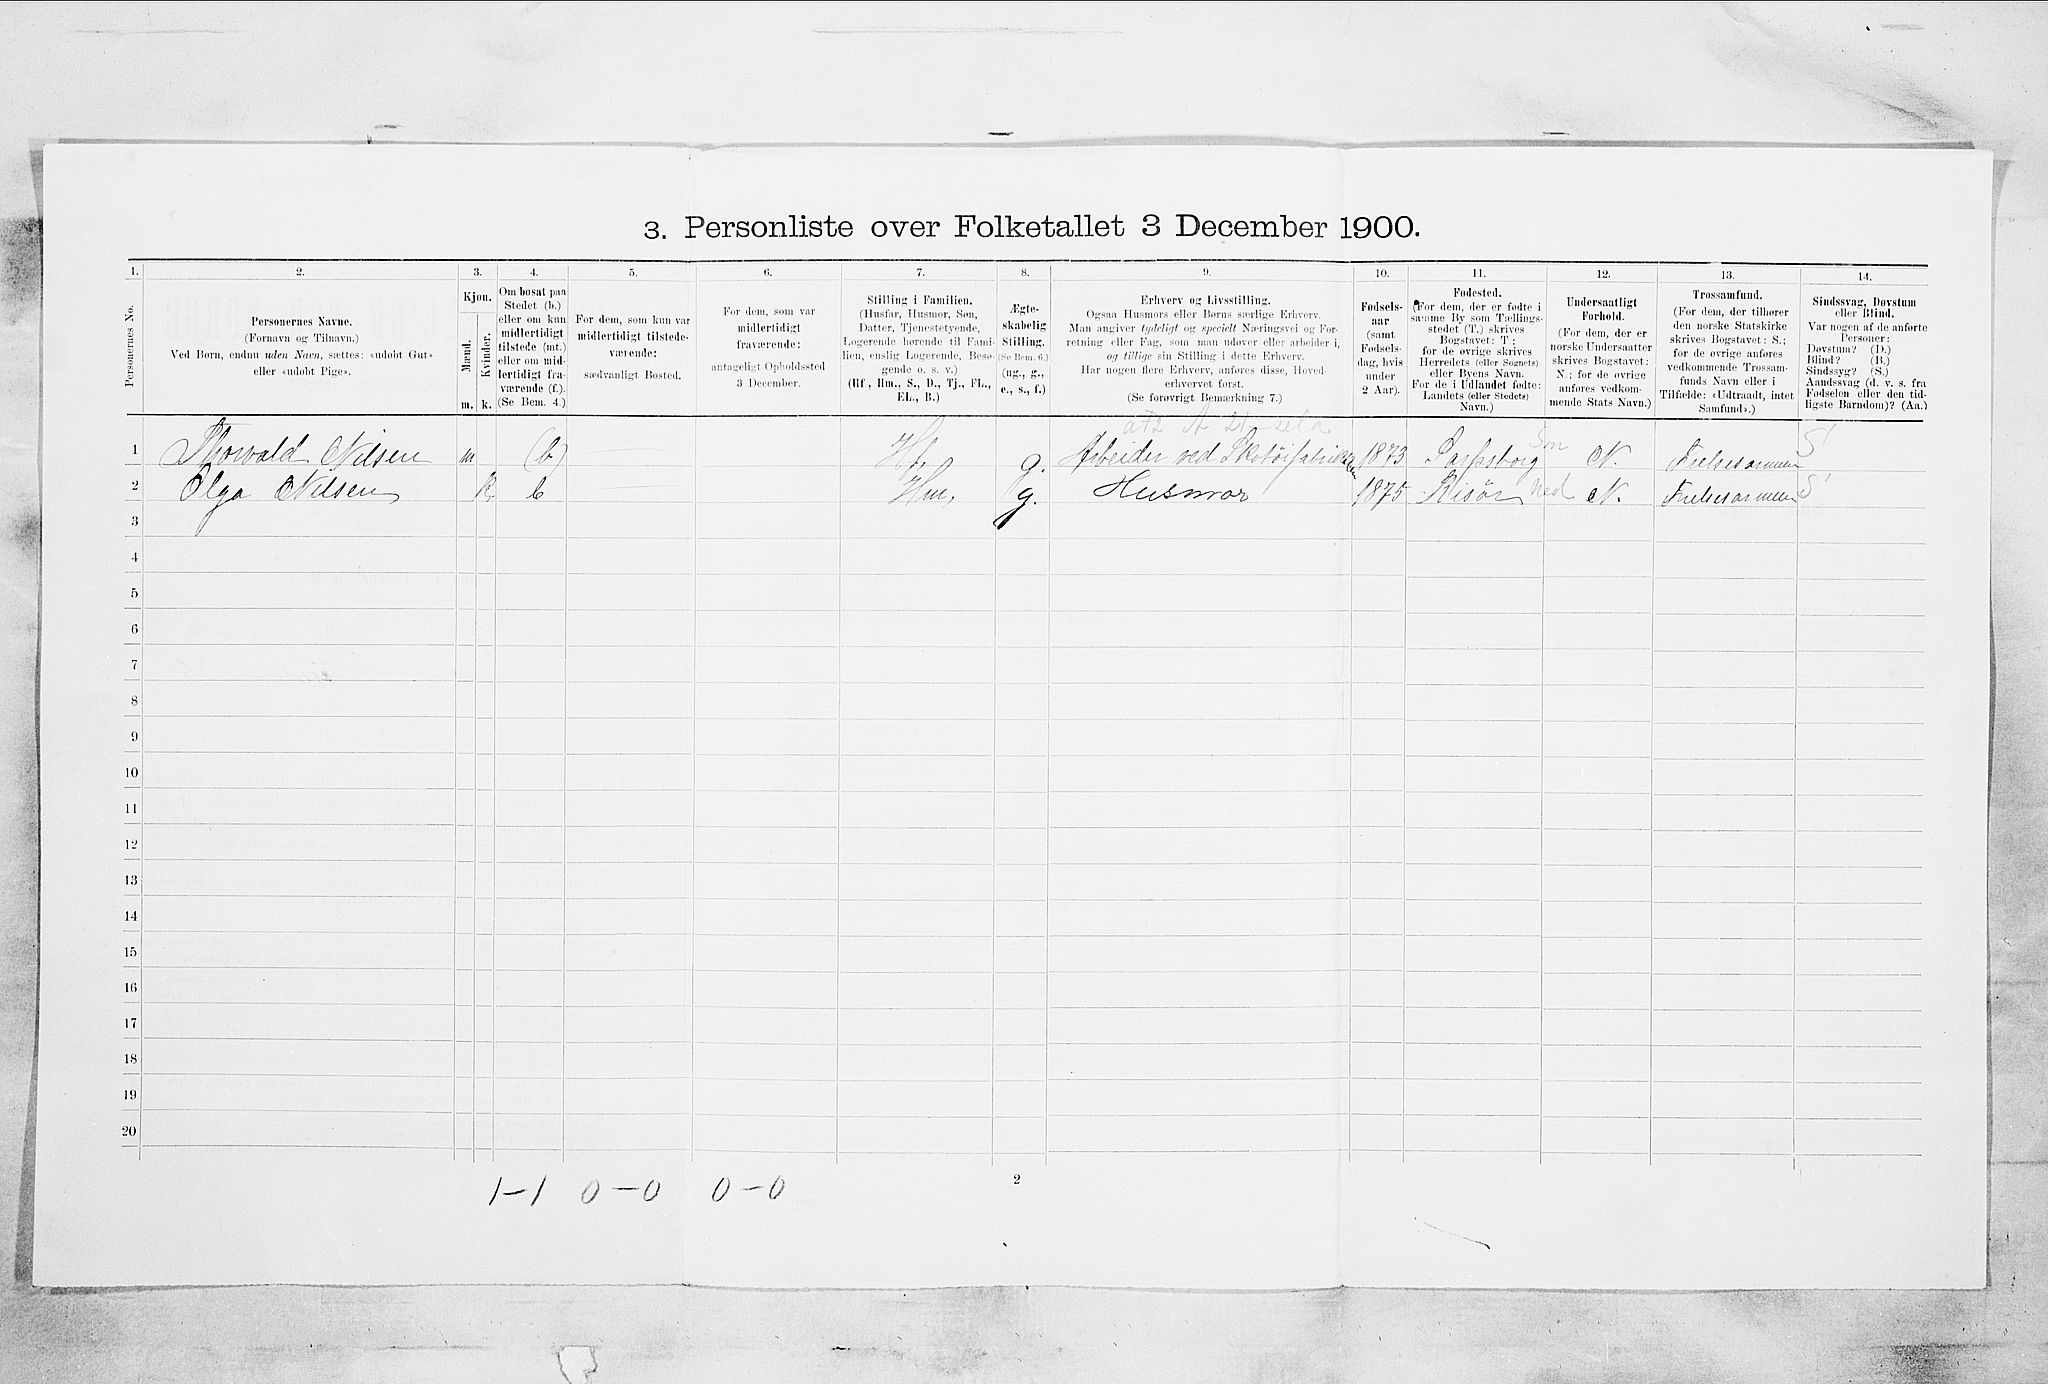 3. Personliste over Folketallet 3 December 1900.
1. 2. 3. 4. 5. 6. 7. 8. 9. 10. 11. 12. 13. 14.
Personernes No.
Personernes Navne.
(Fornavn og Tilnavn.)
Ved Børn, endnu uden Navn, sættes: «udøbt Gut»
eller «udøbt Pige».
Kjøn.
Mænd.
Kvinder.
m. k.
Om bosat paa
Stedet (b.)
eller om kun
midlertidigt
tilstede (mt.)
eller om mid-
lertidigt fra-
værende (f.).
(Se Bem. 4.)
For dem, som kun var
midlertidigt tilstede-
værende:
sædvanligt Bosted.
For dem, som var
midlertidigt
fraværende:
antageligt Opholdssted
3 December.
Stilling i Familien.
(Husfar, Husmor, Søn,
Datter, Tjenestetyende,
Logerende hørende til Fami-
lien, enslig Logerende, Besø-
gende o. s. v.)
(Hf., Hm., S., D., Tj., FL.,
EL., B.)
Ægte-
skabelig
Stilling.
(Se Bem. 6.)
(ug., g.,
e., s., f.)
Erhverv og Livsstilling.
Ogsaa Husmors eller Børns særlige Erhverv.
Man angiver tydeligt og specielt Næringsvei og For-
retning eller Fag, som man udøver eller arbeider i,
og tillige sin Stilling i dette Erhverv.
Har nogen flere Erhverv, anføres disse, Hoved-
erhvervet først.
(Se forøvrigt Bemærkning 7.)
Fødsels-
aar
(samt
Fødsels-
dag, hvis
under
2 Aar).
Fødested.
(For dem, der er fødte i
samme By som Tællings-
stedet (T.) skrives
Bogstavet: T.;
for de øvrige skrives
Herredets (eller Sognets)
eller Byens Navn.
For de i Udlandet fødte:
Landets (eller Stedets)
Navn.)
Undersaatligt
Forhold.
(For dem, der er
norske Undersaatter
skrives Bogstavet:
N.; for de øvrige
anføres vedkom-
mende Stats Navn.)
Trossamfund.
(For dem, der tilhører
den norske Statskirke
skrives Bogstavet: S.;
for de øvrige anføres
vedkommende Trossam-
funds Navn eller i
Tilfælde: «Udtraadt, intet
Samfund».)
Sindssvag, Døvstum
eller Blind.
Var nogen af de anførte
Personer:
Døvstum? (D.)
Blind? (B.)
Sindssyg? (S.)
Aandssvag (d. v. s. fra
Fødselen eller den tid-
ligste Barndom)? (Aa.)
1 Thorvald Nilsen m (b) Hf. g. Arbeider ved Skotøifabrikken 1873 Sarpsborg N. Frelsesarmeen S
2 Olga Nilsen k b Hm, g. Husmor 1875 Risør Ned N. Frelsesarmeen S
3
4
5
6
7
8
9
10
11
12
13
14
15
16
17
18
19
20
1-1 0-0 0-0
2